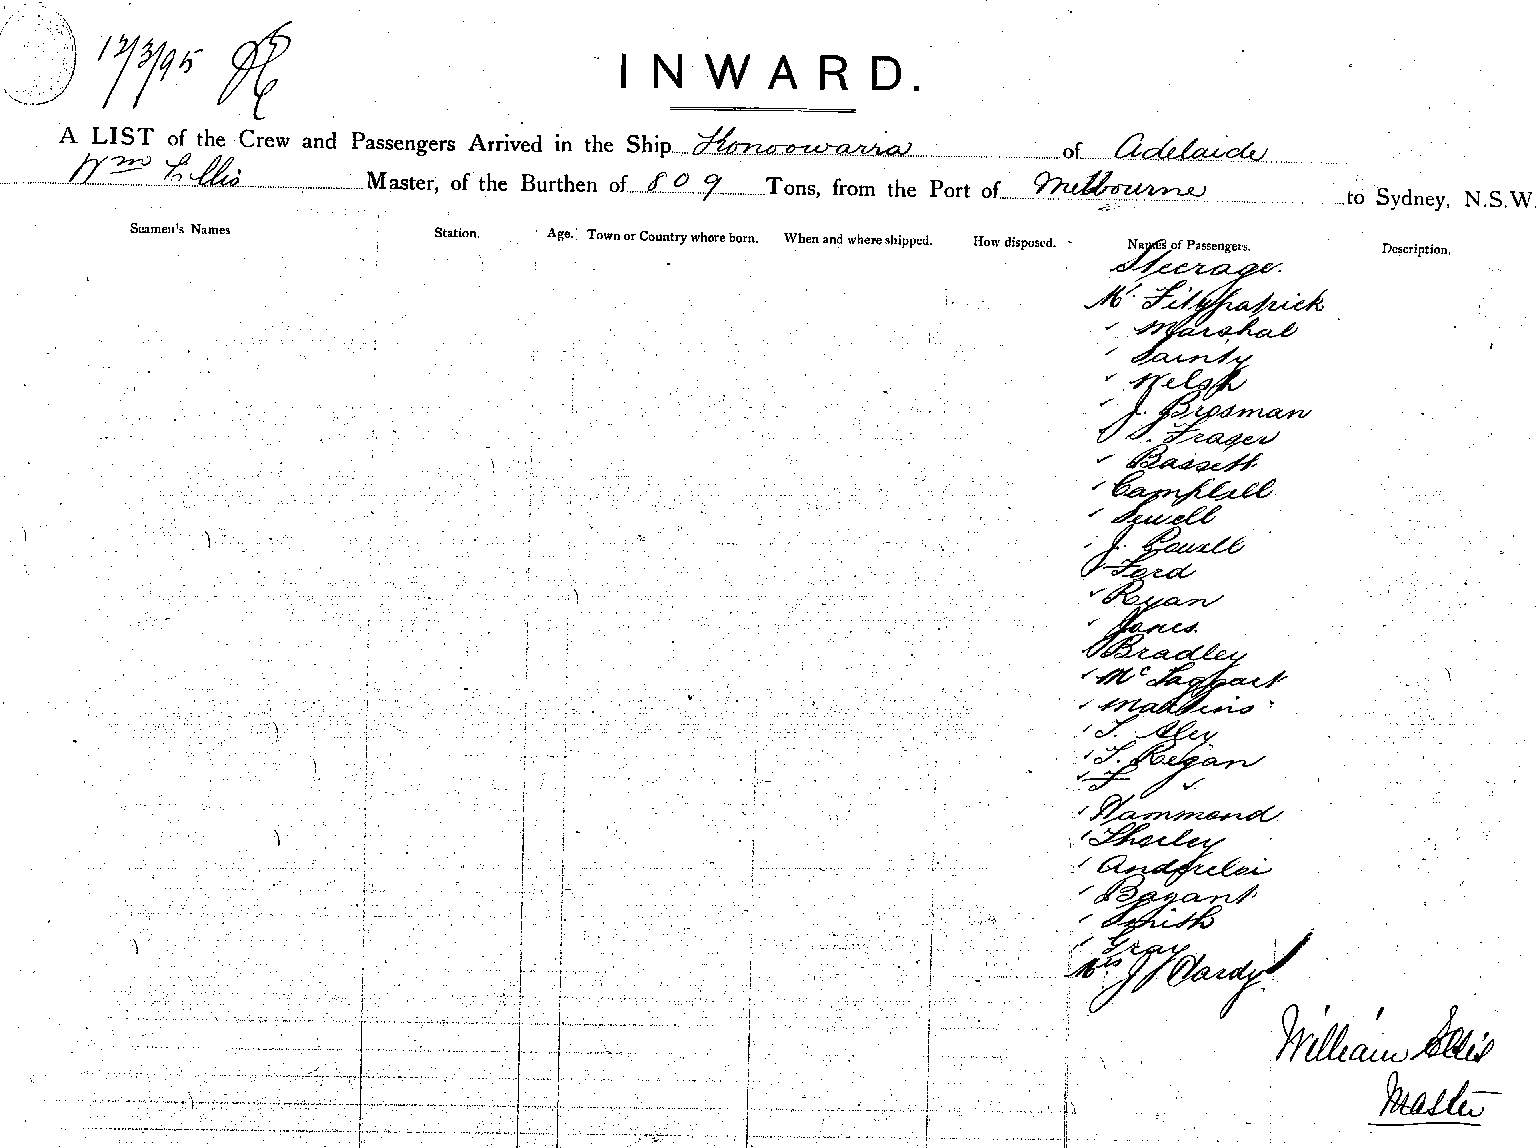 12/3/95
INWARD.
A LIST of the Crew and Passengers Arrived in the Ship Konoowarra of Adelaide
Wm Ellis Master, of the Burthen of 809 Tons, from the Port of Melbourne to Sydney, N.S.W.
Seamen's Names Station. Age. Town or Country where born. When and where shipped. How disposed. Names of Passengers. Description.
Steerage.
Mr Fitzpatrick
" Marshal
" Sainty
" Welsh
" J. Brosman
Fraser
" Bassett
" Campbell
" Sewell
" J. Powell
Ford
" Ryan
" Jones
Bradley
" McTaggart
"
" T.
" T. Regan
" F "
" Hammond
" Sherley
"
" Bryant
" Smith
" Gray
Mrs J Hardy
William Ellis
Master